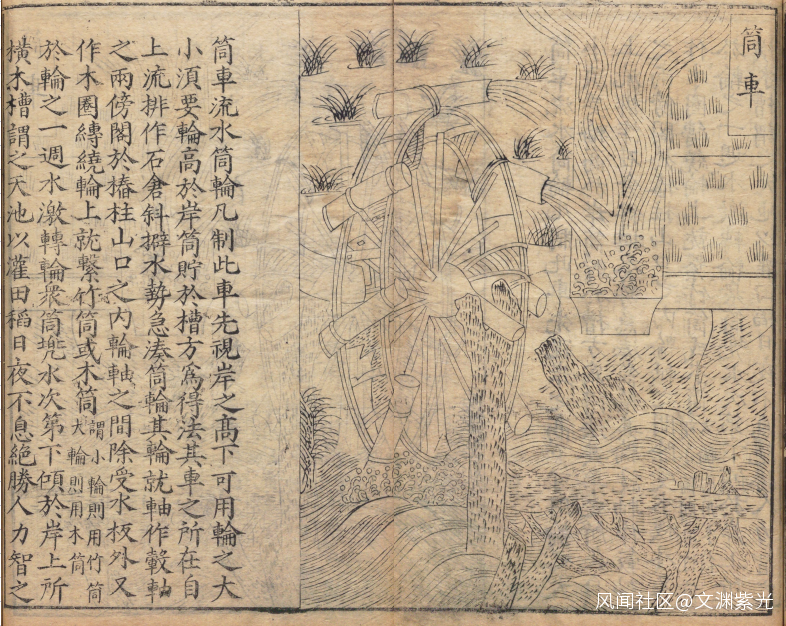 筒車
筒車流水筒輪凡制此車先視岸之髙下可用輪之大
小湏要輪高於岸筒貯於槽方爲得法其車之所在自
上流排作石倉斜擗水勢急湊筒輪其輪就軸作轂軸
之兩傍閣於樁柱山口之内輪軸之間除受水板外又
作木圈縛繞輪上就繫竹筒或木筒謂小輪則用竹筒大輪則用木筒
於輪之一週水激轉輪衆筒兠水次第下傾於岸上所
橫木槽謂之天池以灌田稻日夜不息絶勝人力智之
风闻社区@文渊紫光